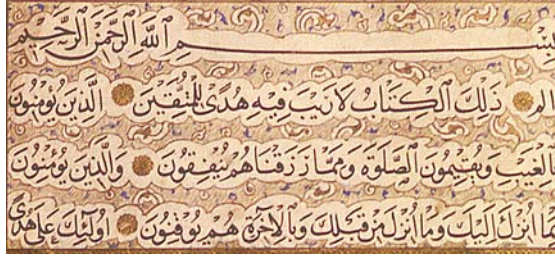 بِسْمِ ٱللَّهِ ٱلرَّحْمَٰنِ ٱلرَّحِيمِ
الم ذَٰلِكَ ٱلْكِتَابُ لَا رَيْبَ فِيهِ هُدًى لِلْمُتَّقِينَ الَّذِينَ يُؤْمِنُونَ
بِالْغَيْبِ وَيُقِيمُونَ ٱلصَّلَوٰةَ وَمِمَّا رَزَقْنَاهُمْ يُنْفِقُونَ وَالَّذِينَ يُؤْمِنُونَ
بِمَا أُنْزِلَ إِلَيْكَ وَمَا أُنْزِلَ مِنْ قَبْلِكَ وَبِالْآخِرَةِ هُمْ يُوقِنُونَ أُولَٰئِكَ عَلَىٰ هُدًى